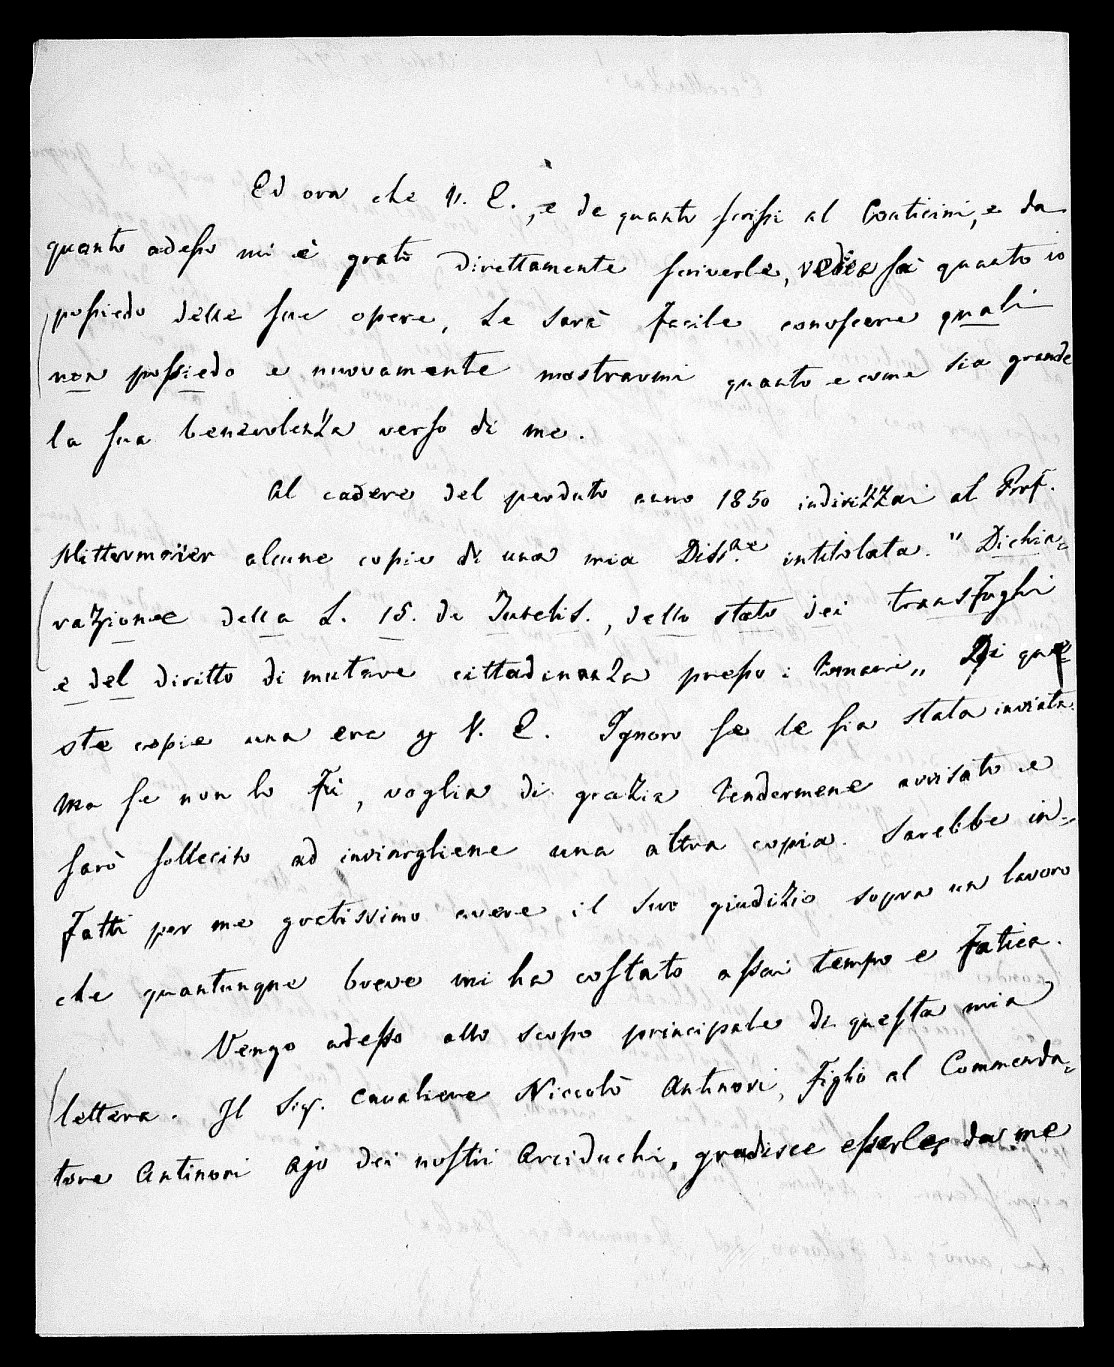 Ed ora che V. E., e da quanto scrissi al Conticini, e da
quanto adesso mi è grato direttamente scriverle, sa quanto io
possiedo delle sue opere, Le sarà facile conoscere quali
non possiedo e nuovamente mostrarmi quanto e come sia grande
la sua benevolenza verso di me.
Al cadere del perduto anno 1850 indirizzai al Prof.
Mittermaier alcune copie di una mia Diss.ne intitolata. " Dichia=
razione della L. 15. de Interdictis., dello stato dei transfughi
e del diritto di mutare cittadinanza presso i Romani „ Di que
ste copie una era p V. E. Ignoro se le sia stata inviata.
Ma se non lo fù, voglia di grazia rendermene avvisato e
sarò sollecito ad inviargliene una altra copia. Sarebbe in=
fatti per me gratissimo avere il suo giudizio sopra un lavoro
che quantunque breve mi ha costato assai tempo e fatica.
Vengo adesso allo scopo principale di questa mia
lettera. Il Sig. Cavaliere Niccolò Antinori, figlio al Commenda=
tore Antinori Ajo dei nostri Arciduchi, gradisce esserle da me